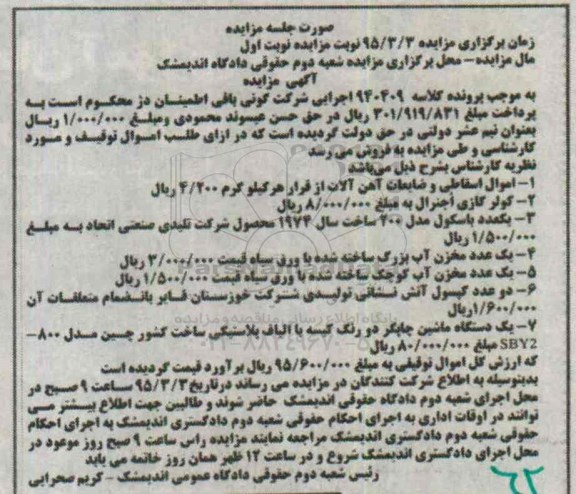 صورت جلسه مزایده
زمان برگزاری مزایده ۹۵/۳/۳ نوبت مزایده نوبت اول
مال مزایده – محل برگزاری مزایده شعبه دوم حقوقی دادگاه اندیمشک
آگهی مزایده
به موجب پرونده کلاسه ۹۴۰۴۰۹ اجرایی شرکت گونی بافی اطمینان دژ محکوم است به
پرداخت مبلغ ۳۰۱/۹۱۹/۸۳۱ ریال در حق حسن عیسوند محمودی ومبلغ ۱/۰۰۰/۰۰۰ ریال
بعنوان نیم عشر دولتی در حق دولت گردیده است که در ازای طلب اموال توقیف و مورد
کارشناسی و طی مزایده به فروش می رسد
نظریه کارشناس بشرح ذیل میباشد
۱– اموال اسقاطی و ضایعات آهن آلات از قرار هرکیلو گرم ۴/۲۰۰ ریال
۲– کولر گازی اجنرال به مبلغ ۸/۰۰۰/۰۰۰ ریال
۳– یکعدد باسکول مدل ۲۰۰ ساخت سال ۱۹۷۴ محصول شرکت تلیدی صنعتی اتحاد به مبلغ
۱/۵۰۰/۰۰۰ ریال
۴– یک عدد مخزن آب بزرگ ساخته شده با ورق سیاه قیمت ۳/۰۰۰/۰۰۰ ریال
۵– یک عدد مخزن آب کوچک ساخته شده با ورق سیاه قیمت ۱/۵۰۰/۰۰۰ ریال
۶– دو عدد کپسول آتش نشانی تولیدی شرکت خوزستان فایر بانضمام متعلقات آن
۱/۶۰۰/۰۰۰ریال
۷– یک دستگاه ماشین چاپگر دو رنگ کیسه با الیاف پلاستیکی ساخت کشور چین مدل ۸۰۰–
SBY2 مبلغ ۸۰/۰۰۰/۰۰۰ ریال
که ارزش کل اموال توقیفی به مبلغ ۹۵/۶۰۰/۰۰۰ ریال برآورد قیمت گردیده است
بدینوسیله به اطلاع شرکت کنندگان در مزایده می رساند درتاریخ ۹۵/۳/۳ ساعت ۹ صبح در
محل اجرای شعبه دوم دادگاه حقوقی اندیمشک حاضر شوند و طالبین جهت اطلاع بیشتر می
توانند در اوقات اداری به اجرای احکام حقوقی شعبه دوم دادگستری اندیمشک به اجرای احکام
حقوقی شعبه دوم دادگستری اندیمشک مراجعه نمایند مزایده راس ساعت ۹ صبح روز موعود در
محل اجرای دادگستری اندیمشک شروع و در ساعت ۱۲ ظهر همان روز خاتمه می یابد
رئیس شعبه دوم حقوقی دادگاه عمومی اندیمشک – کریم صحرایی
۶۲
پایگاه اطلاع رسانی مناقصه و مزایده